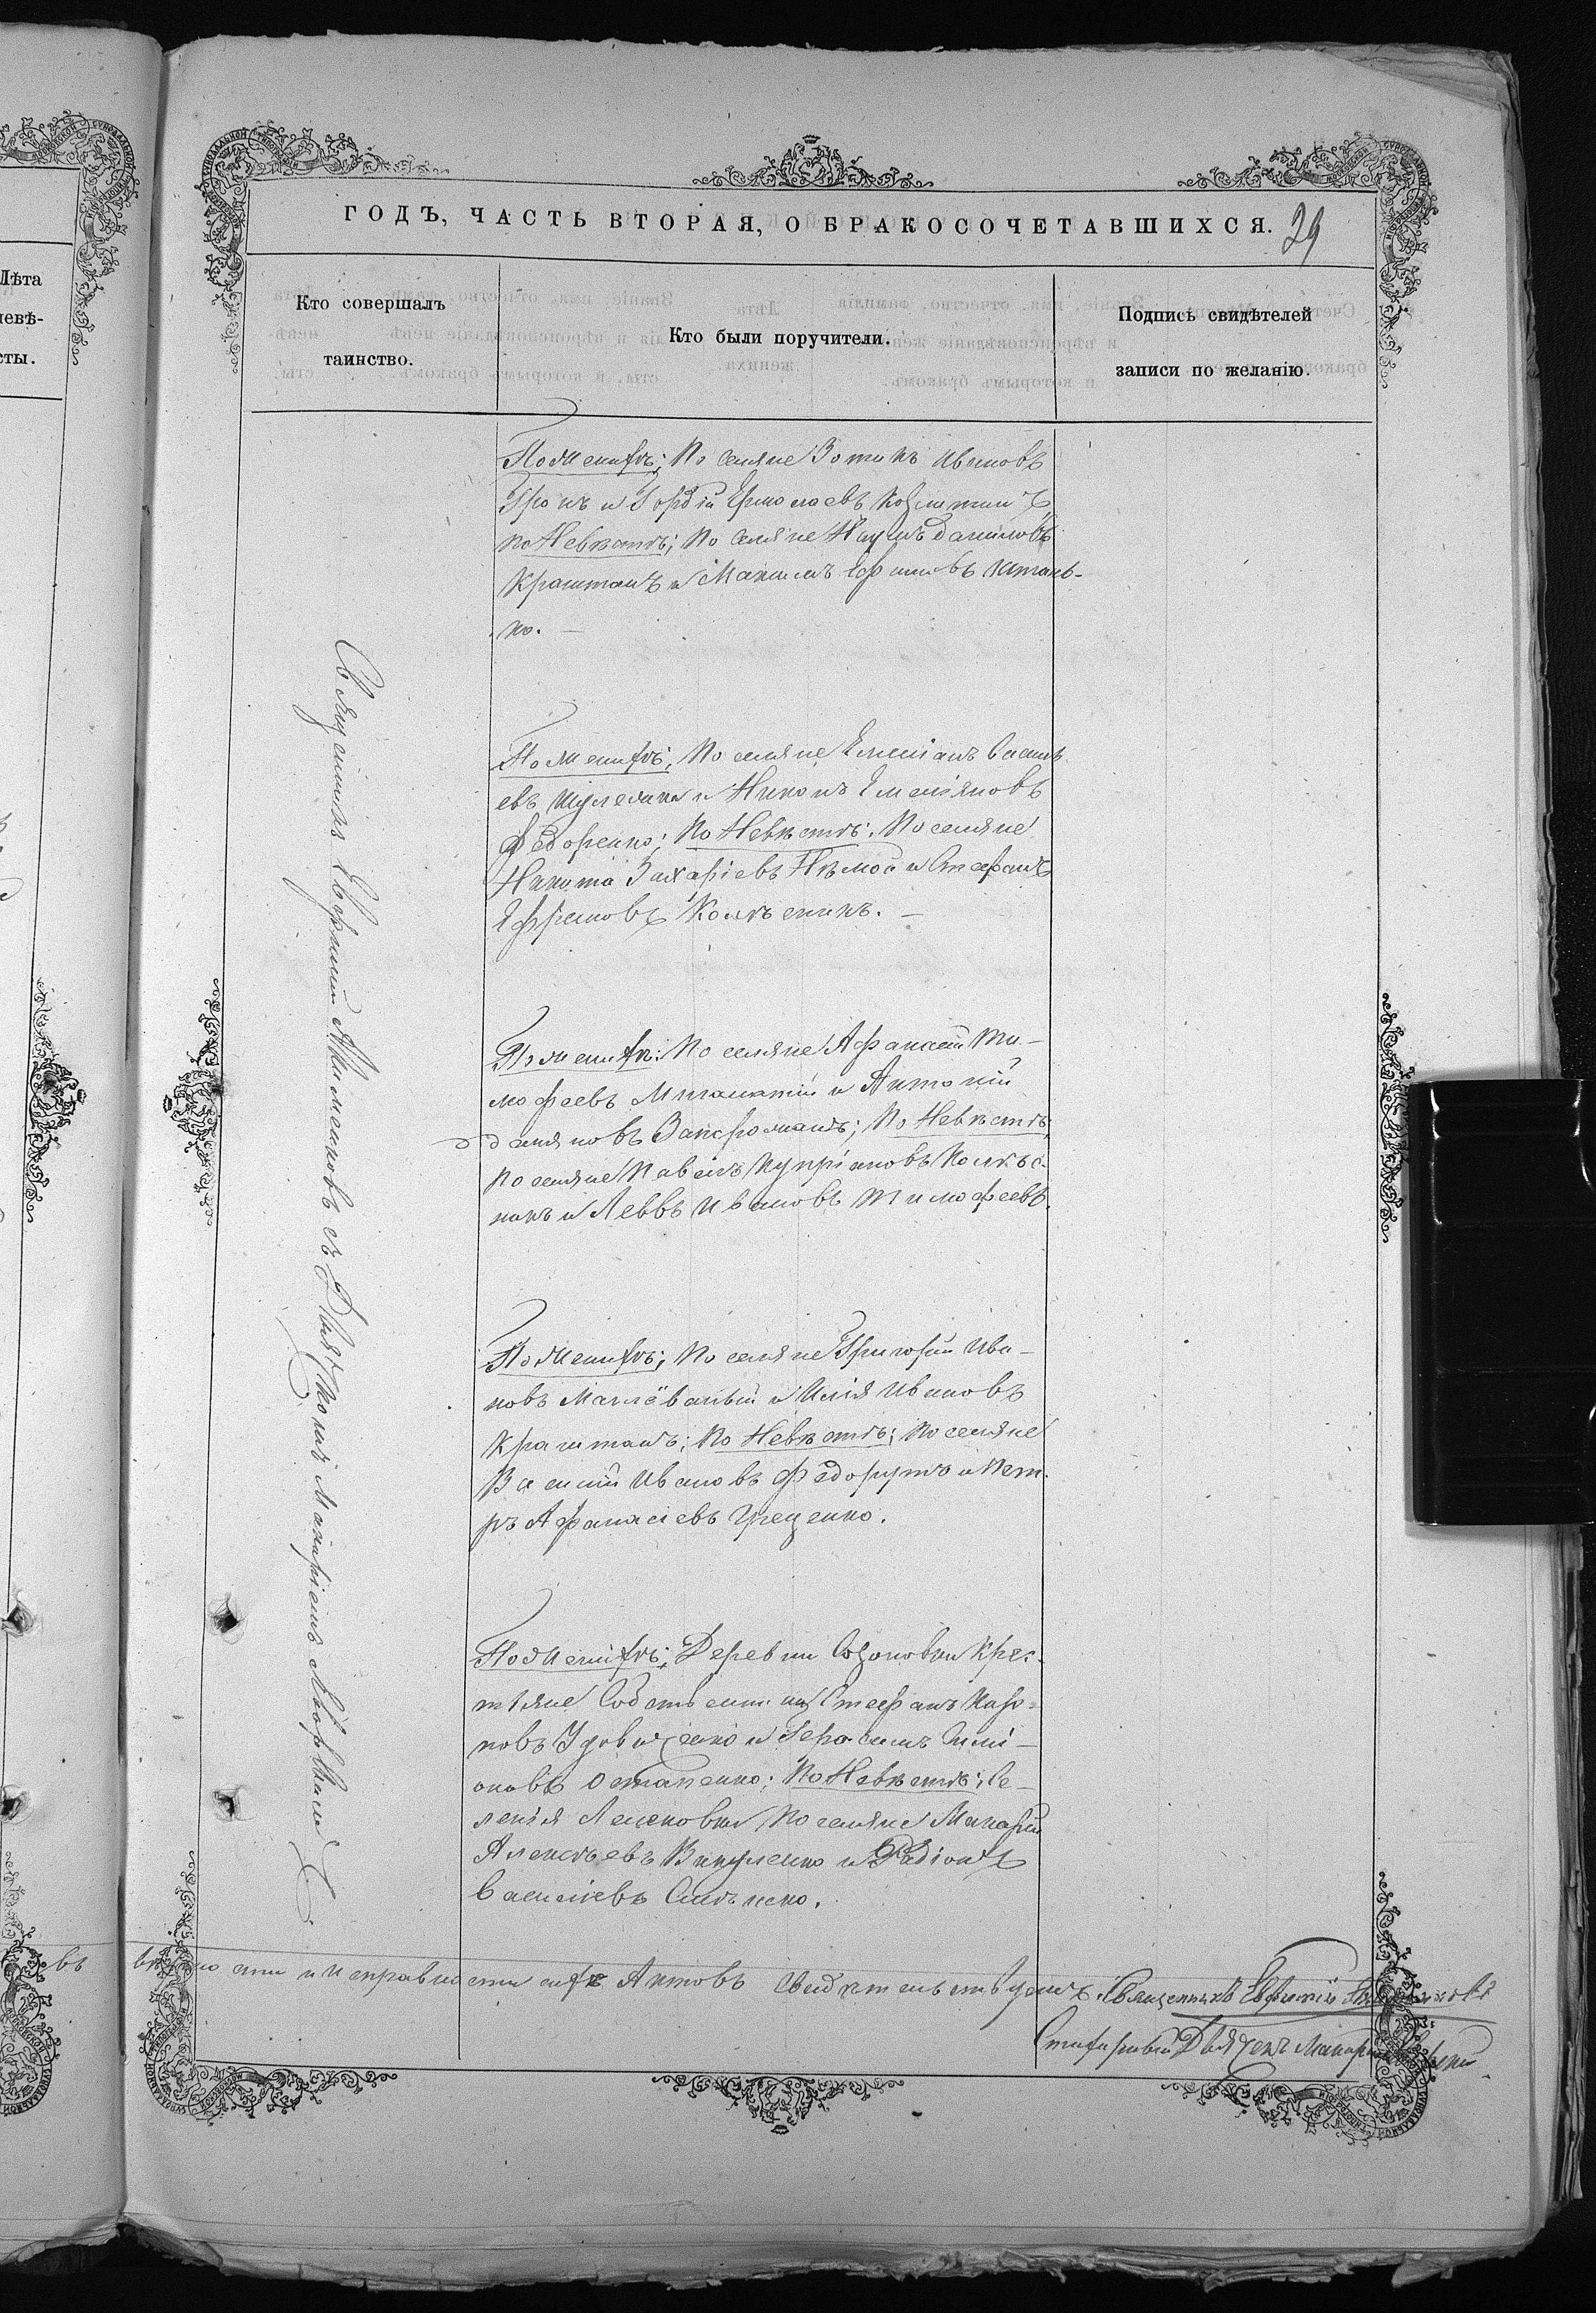 ГОДЪ, ЧАСТЬ ВТОРАЯ, О БРАКОСОЧЕТАВШИХСЯ. 29
Лѣта
невѣ-
сты.
Кто совершалъ
таинство.
Кто были поручители.
Подпись свидѣтелей
записи по желанію.
Священникъ Евфимій съ Дьячкомъ Макаріемъ
По Женихѣ; Поселяне Зотикъ Ивановъ
и Гордій Ермолаевъ
по Невѣстѣ; Поселяне Наумъ Даниловъ
Краштанъ и Максимъ
ко.
По Женихѣ; Поселяне Емеліанъ Василь
евъ Шулежко и Никонъ Емеліяновъ
Федоренко; По Невѣстѣ; Поселяне
Никита Захаріевъ Нѣмой и Стефанъ
Ефремовъ Колѣсникъ.
По Женихѣ: Поселяне Афанасій Ти-
мофеевъ и Антоній
Даміяновъ Запорожанъ; По Невѣстѣ,
поселяне Павелъ Купріановъ Колѣс-
никъ и Левъ Ивановъ Тимофеевъ.
По Женихѣ; Поселяне Григорій Ива-
новъ Малёваный и Илія Ивановъ
Краштанъ; По Невѣстѣ; Поселяне
Василій Ивановъ и Пет-
ръ Афанасіевъ Гуценко.
По Женихѣ; Деревни Созоновки Крес-
тьяне Собственники Стефанъ Кар-
повъ Удовиченко и Герасимъ Симі-
оновъ Остапенко; По Невѣстѣ; Се-
ленія Поселяне Макарій
Алексѣевъ Викуленко и Родіонъ
Василіевъ
въ вѣрности и исправности сихъ Актовъ свидѣтельствуемъ. Священникъ Евфимій
Дьячекъ Макарій